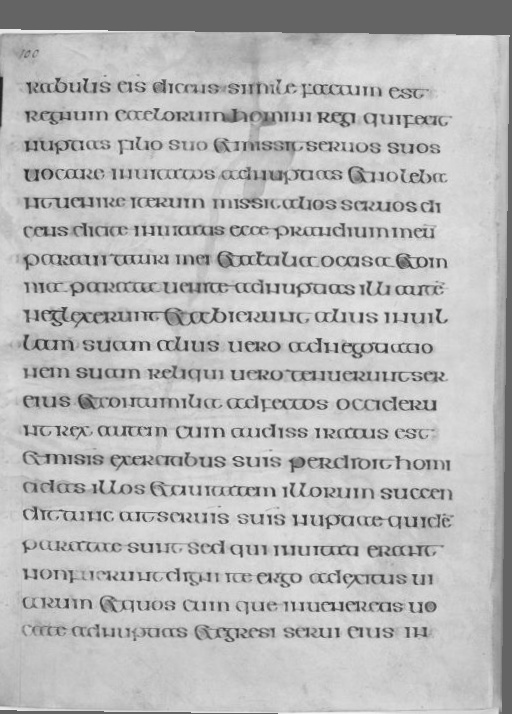 100
rabulis eis dicens simile factum est
regnum caelorum homini regi qui fecit
nuptias filio suo & misit seruos suos
uocare inuitatos ad nuptias & noleba
nt uenire iterum missit alios seruos di
cens dicite inuitatis ecce prandium meū
paraui tauri mei & altilia occisa & om
nia parata uenite ad nuptias illi autē
neglexerunt & abierunt alius in uil
lam suam alius uero ad negotiatio
nem suam reliqui uero tenuerunt ser
eius & contumilia adfectos occideru
nt rex autem cum audiss iratus est
& misis exercitibus suis perdidit homi
cidas illos & ciuitatem illorum succen
dit tunc ait seruis suis nuptiae quidē
paratae sunt sed qui inuitati erant
non fuerunt digni ite ergo ad exitus ui
arum & quos cum que inueneretis uo
cate ad nuptias & egresi serui eius in